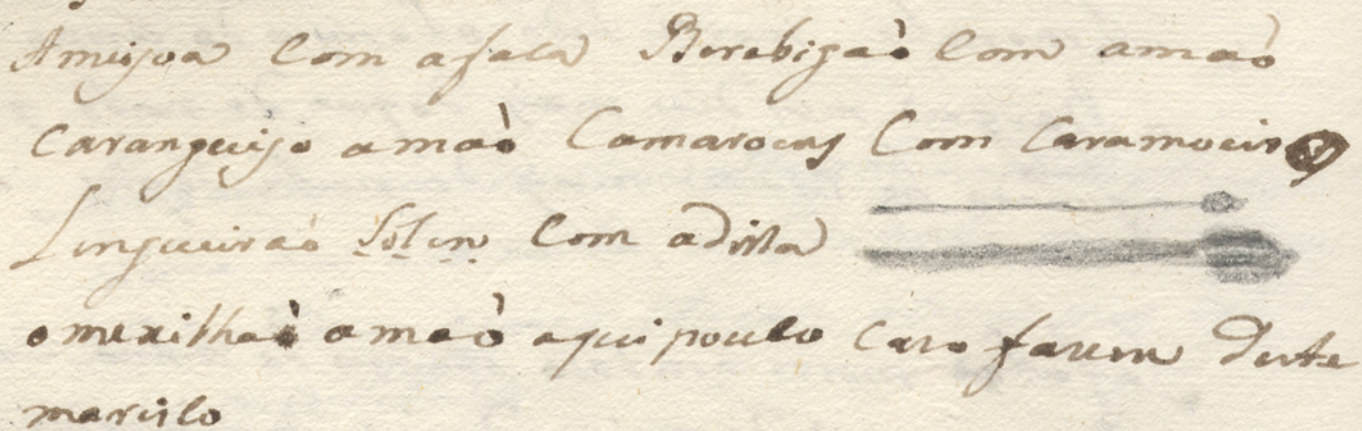 Ameijoa Com afaca Berebigaò Com amaò
Carangueijo amaò Camaroens Com Caramoeiro
Lingueiraò Solen Com adista
omexilhaò amaò aqui pouco Cazo fazem deste
marisco